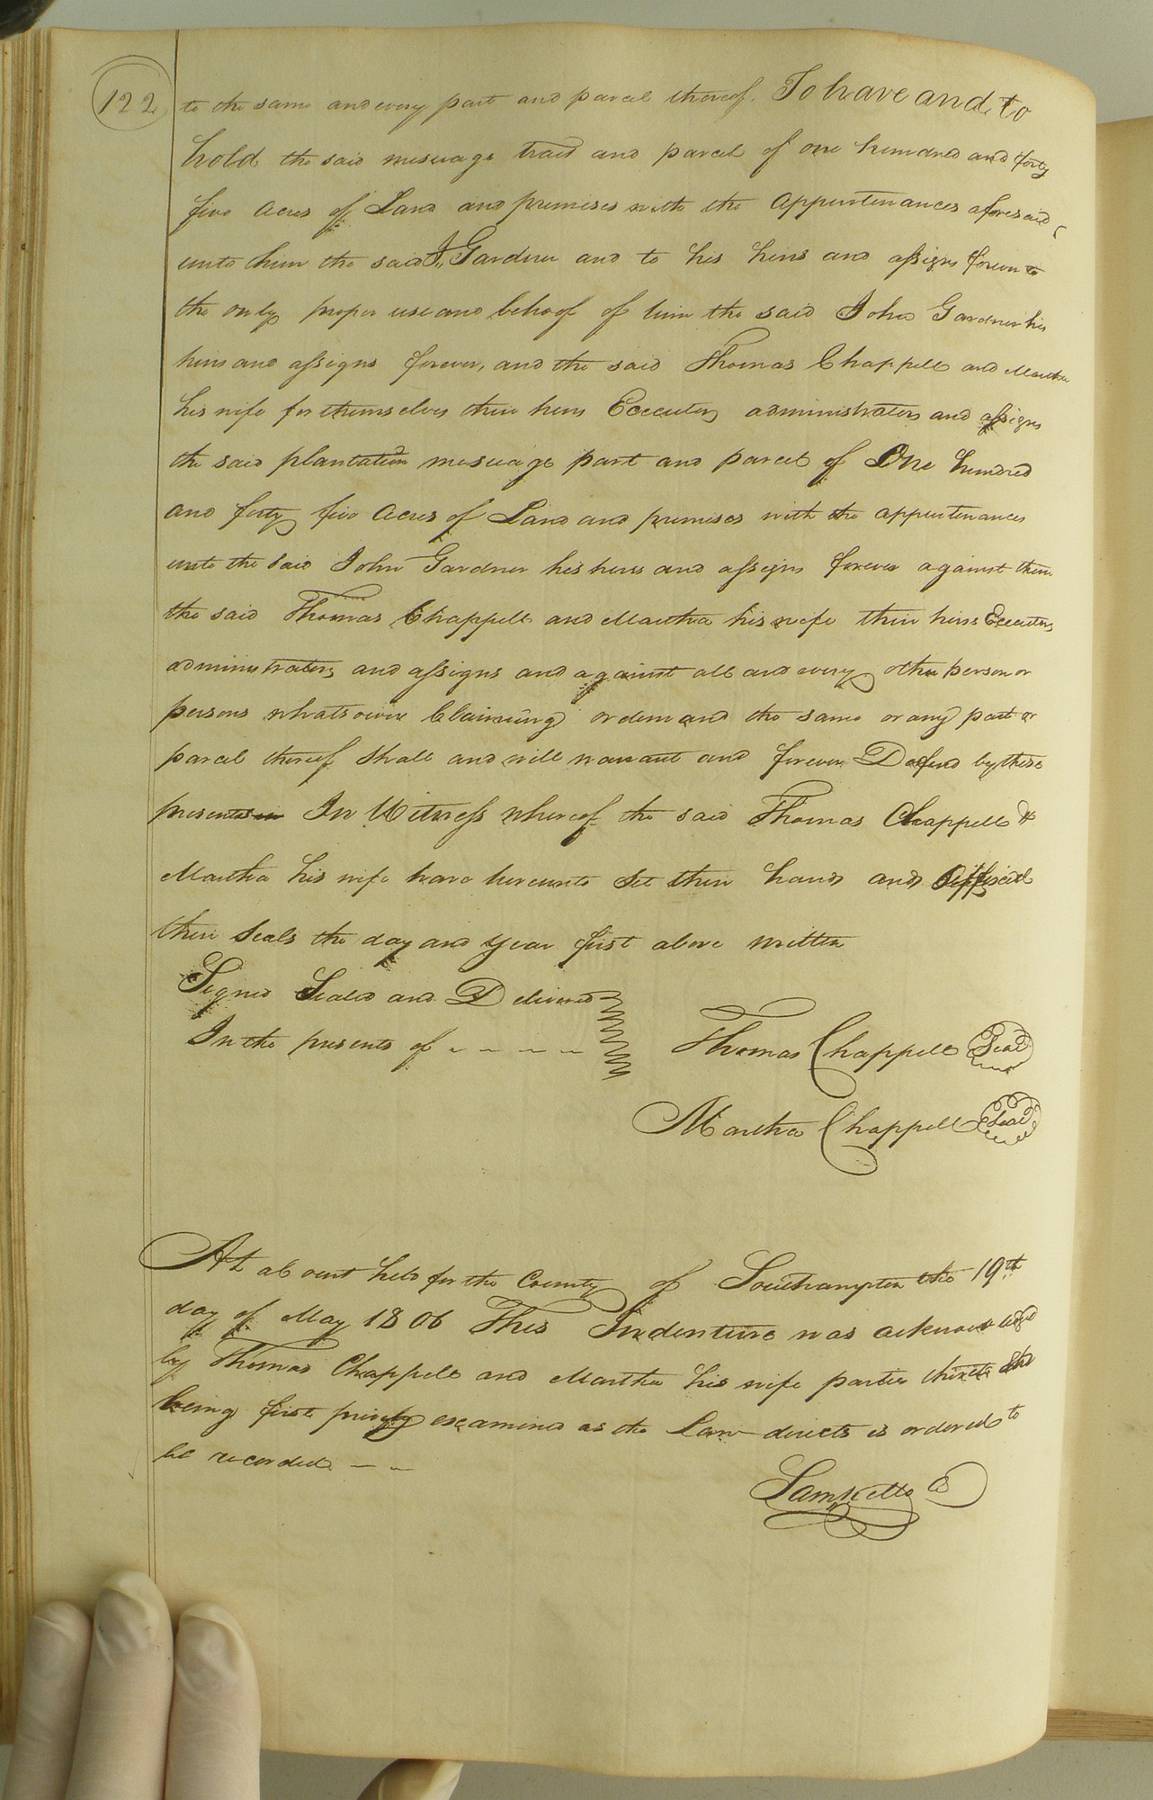 122
to the same and every part and parcel thereof. To have and to
hold the said mesuage tract and parcel of one hundred and forty
five acres of Land and premises with the appurtenances aforesaid
unto him the said J,, Gardner and to his heirs and assigns forever to
the only proper use and behoof of him the said John Gardner his
heirs and assigns forever, and the said Thomas Chappell and Martha
his wife for themselves their heirs Executors administrators and assigns
the said plantation mesuage part and parcel of One hundred
and forty five acres of Land and premises with the appurtenances
unto the said John Gardner his heirs and assigns forever against them
the said Thomas Chappell and Martha his wife their heirs Executors
administrators and assigns and against all and every other person or
persons whatsoever Claiming or demand the same or any part or
parcel thereof shall and will warrant and forever Defend by these
presents In Witness whereof the said Thomas Chappell &
Martha his wife have hereunto set their hands and affixed
their Seals the day and year first above written
Signed Sealed and Delivered
In the presents of - - - - -
Thomas Chappell Seal
Martha Chappell Seal
At a Court held for the County of Southampton the 19th
day of May 1806 This Indenture was acknowledged
by Thomas Chappell and Martha his wife parties thereto She
being first privily examined as the Law directs is ordered to
be recorded - -
Saml Kello C